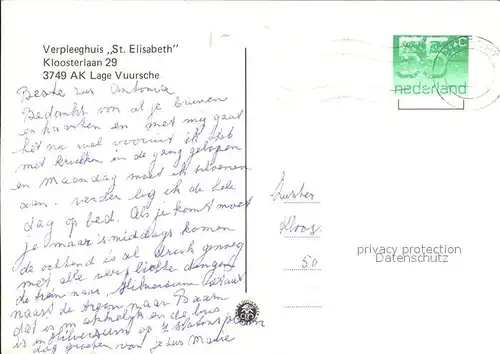 Verpleeghuis „St. Elisabeth"
Kloosterlaan 29
3749 AK Lage Vuursche
Beste zus Antonia
Bedankt voor al je brieven
en kaarten en met mij gaat
het nu wel vooruit ik heb
met krukken in de gang gelopen
en maandag moet ik
aan. verder lig ik de hele
dag op bed. Als je komt moet
je maar 's middags komen
de ochtend is al druk genoeg
met alle verplichte dingen
de trein naar Hilversum
naast de trein naar Baarn
dat is en de bus
is in Hilversum op 't stationsplein
dag groeten van je zus Marie
nederland
Zuster
Kloos
50
privacy protection
Datenschutz